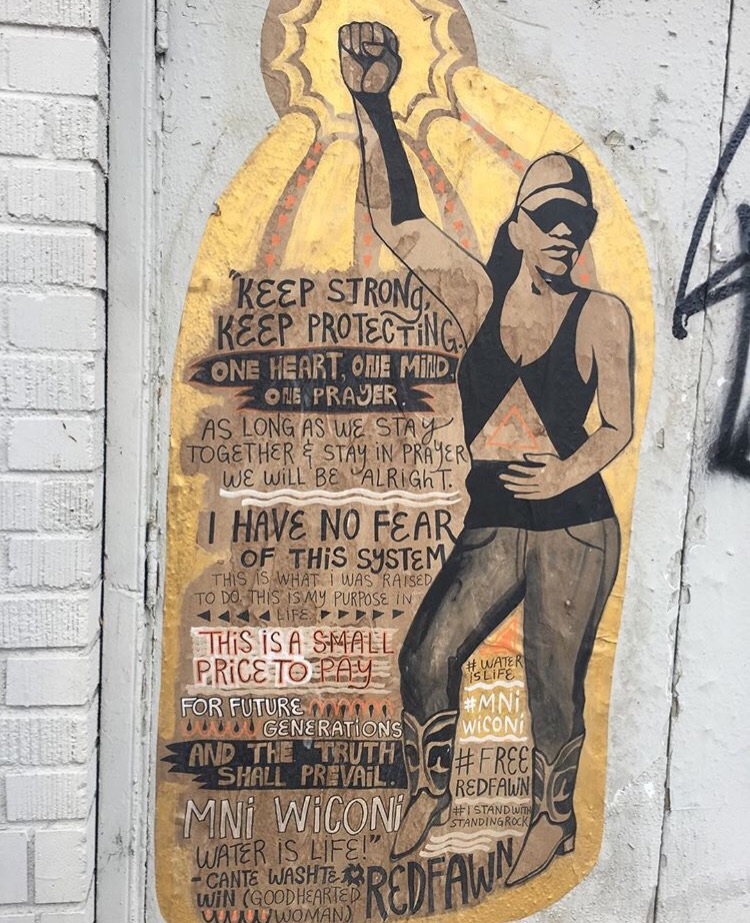 "KEEP STRONG,
KEEP PROTECTING.
ONE HEART, ONE MIND,
ONE PRAYER.
AS LONG AS WE STAY
TOGETHER & STAY IN PRAYER
WE WILL BE ALRIGHT.
I HAVE NO FEAR
OF THIS SYSTEM
THIS IS WHAT I WAS RAISED
TO DO. THIS IS MY PURPOSE IN
LIFE.
THIS IS A SMALL
PRICE TO PAY
FOR FUTURE
GENERATIONS
AND THE TRUTH
SHALL PREVAIL.
MNI WICONI
WATER IS LIFE!"
- CANTE WASHTE
WIN (GOODHEARTED
WOMAN)
REDFAWN
# WATER
IS LIFE
#MNI
WICONI
# FREE
REDFAWN
#I STAND WITH
STANDING ROCK